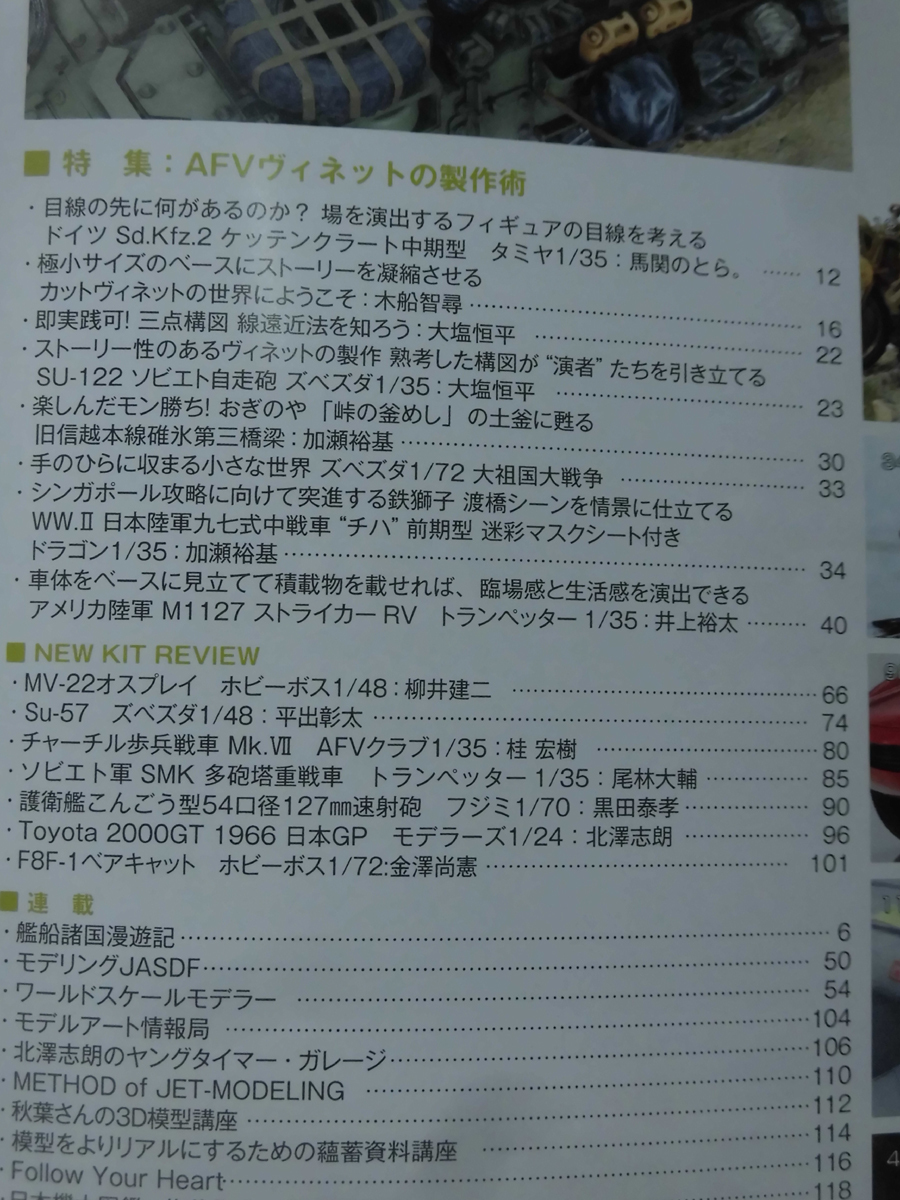 ■ 特 集：AFVヴィネットの製作術
・目線の先に何があるのか？ 場を演出するフィギュアの目線を考える
ドイツ Sd.Kfz.2 ケッテンクラート中期型 タミヤ1/35：馬関のとら。 …… 12
・極小サイズのベースにストーリーを凝縮させる
カットヴィネットの世界にようこそ：木船智尋 …… 16
・即実践可! 三点構図 線遠近法を知ろう：大塩恒平 …… 22
・ストーリー性のあるヴィネットの製作 熟考した構図が“演者”たちを引き立てる
SU-122 ソビエト自走砲 ズベズダ1/35：大塩恒平 …… 23
・楽しんだモン勝ち! おぎのや「峠の釜めし」の土釜に甦る
旧信越本線碓氷第三橋梁：加瀬裕基 …… 30
・手のひらに収まる小さな世界 ズベズダ1/72 大祖国大戦争 …… 33
・シンガポール攻略に向けて突進する鉄獅子 渡橋シーンを情景に仕立てる
WW.Ⅱ 日本陸軍九七式中戦車 “チハ” 前期型 迷彩マスクシート付き
ドラゴン1/35：加瀬裕基 …… 34
・車体をベースに見立てて積載物を載せれば、臨場感と生活感を演出できる
アメリカ陸軍 M1127 ストライカー RV トランペッター 1/35：井上裕太 …… 40
■ NEW KIT REVIEW
・MV-22オスプレイ ホビーボス1/48：柳井建二 …… 66
・Su-57 ズベズダ1/48：平出彰太 …… 74
・チャーチル歩兵戦車 Mk.Ⅶ AFVクラブ1/35：桂 宏樹 …… 80
・ソビエト軍 SMK 多砲塔重戦車 トランペッター 1/35：尾林大輔 …… 85
・護衛艦こんごう型54口径127㎜速射砲 フジミ1/70：黒田泰孝 …… 90
・Toyota 2000GT 1966 日本GP モデラーズ1/24：北澤志朗 …… 96
・F8F-1ベアキャット ホビーボス1/72:金澤尚憲 …… 101
■ 連 載
・艦船諸国漫遊記 …… 6
・モデリングJASDF …… 50
・ワールドスケールモデラー …… 54
・モデルアート情報局 …… 104
・北澤志朗のヤングタイマー・ガレージ …… 106
・METHOD of JET-MODELING …… 110
・秋葉さんの3D模型講座 …… 112
・模型をよりリアルにするための蘊蓄資料講座 …… 114
・Follow Your Heart …… 116
118